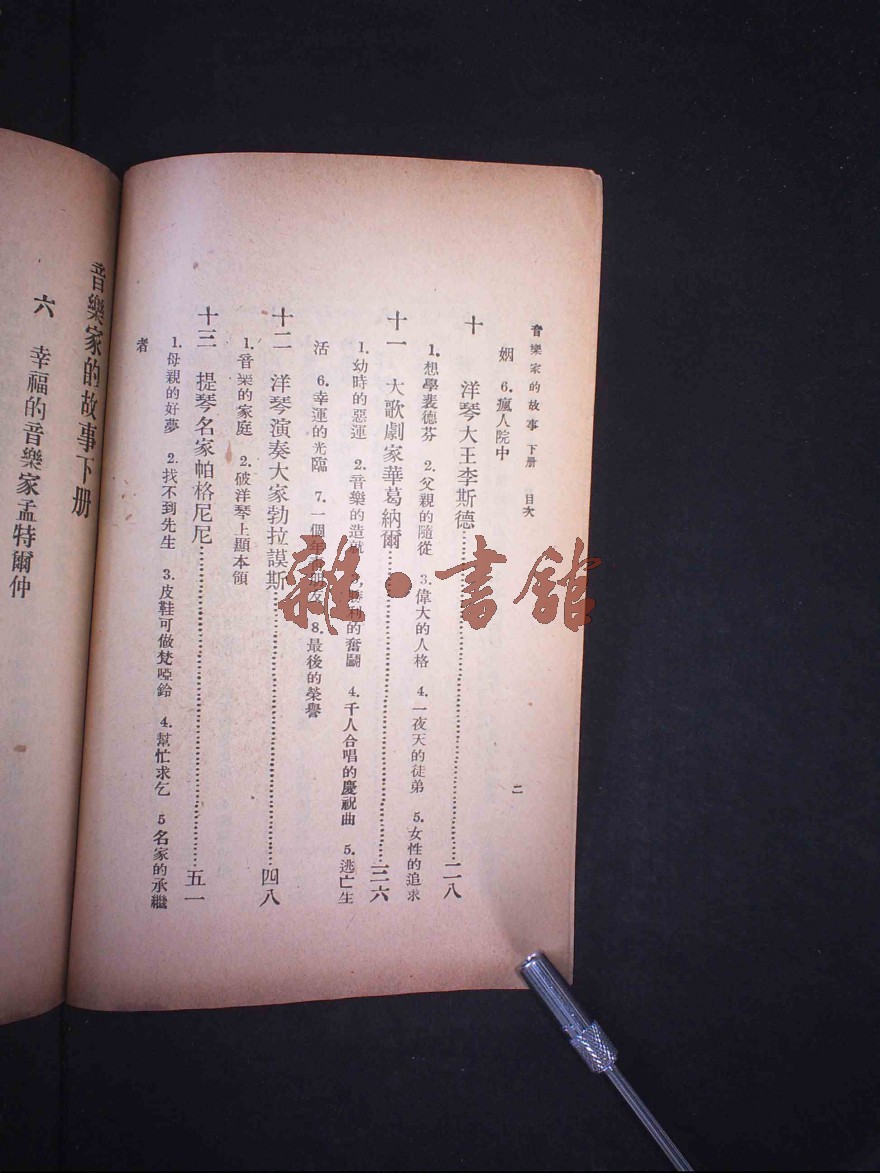 音樂家的故事 下册 目次
二
姻 6.瘋人院中
十 洋琴大王李斯德…………二八
1.想學裴德芬 2.父親的隨從 3.偉大的人格 4.一夜天的徒弟 5.女性的追求
十一 大歌劇家華葛納爾…………三六
1.幼時的惡運 2.音樂的造就 利的奮鬭 4.千人合唱的慶祝曲 5.逃亡生
活 6.幸運的光臨 7.一個年 8.最後的榮譽
十二 洋琴演奏大家勃拉謨斯…………四八
1.音樂的家庭 2.破洋琴上顯本領
十三 提琴名家帕格尼尼…………五一
1.母親的好夢 2.找不到先生 3.皮鞋可做梵啞鈴 4.幫忙求乞 5名家的承繼
者
音樂家的故事下册
六 幸福的音樂家孟特爾仲
雜·書舘